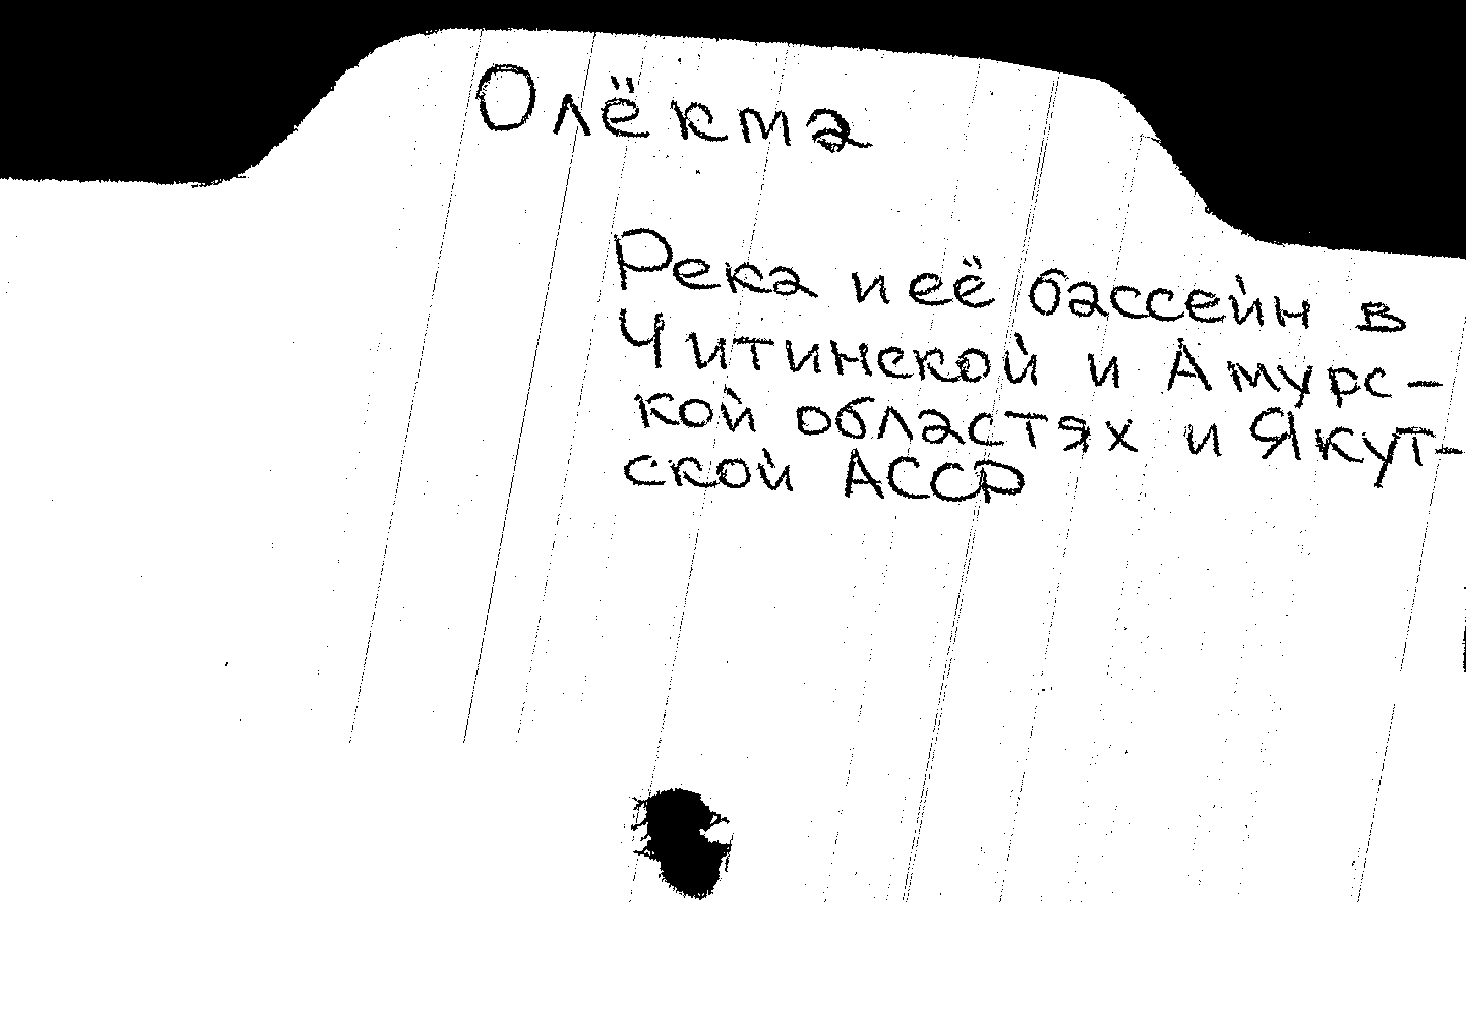 Олёкма
Река и её бассейн в
Читинской и Амурс-
кой областях и Якут-
ской АССР